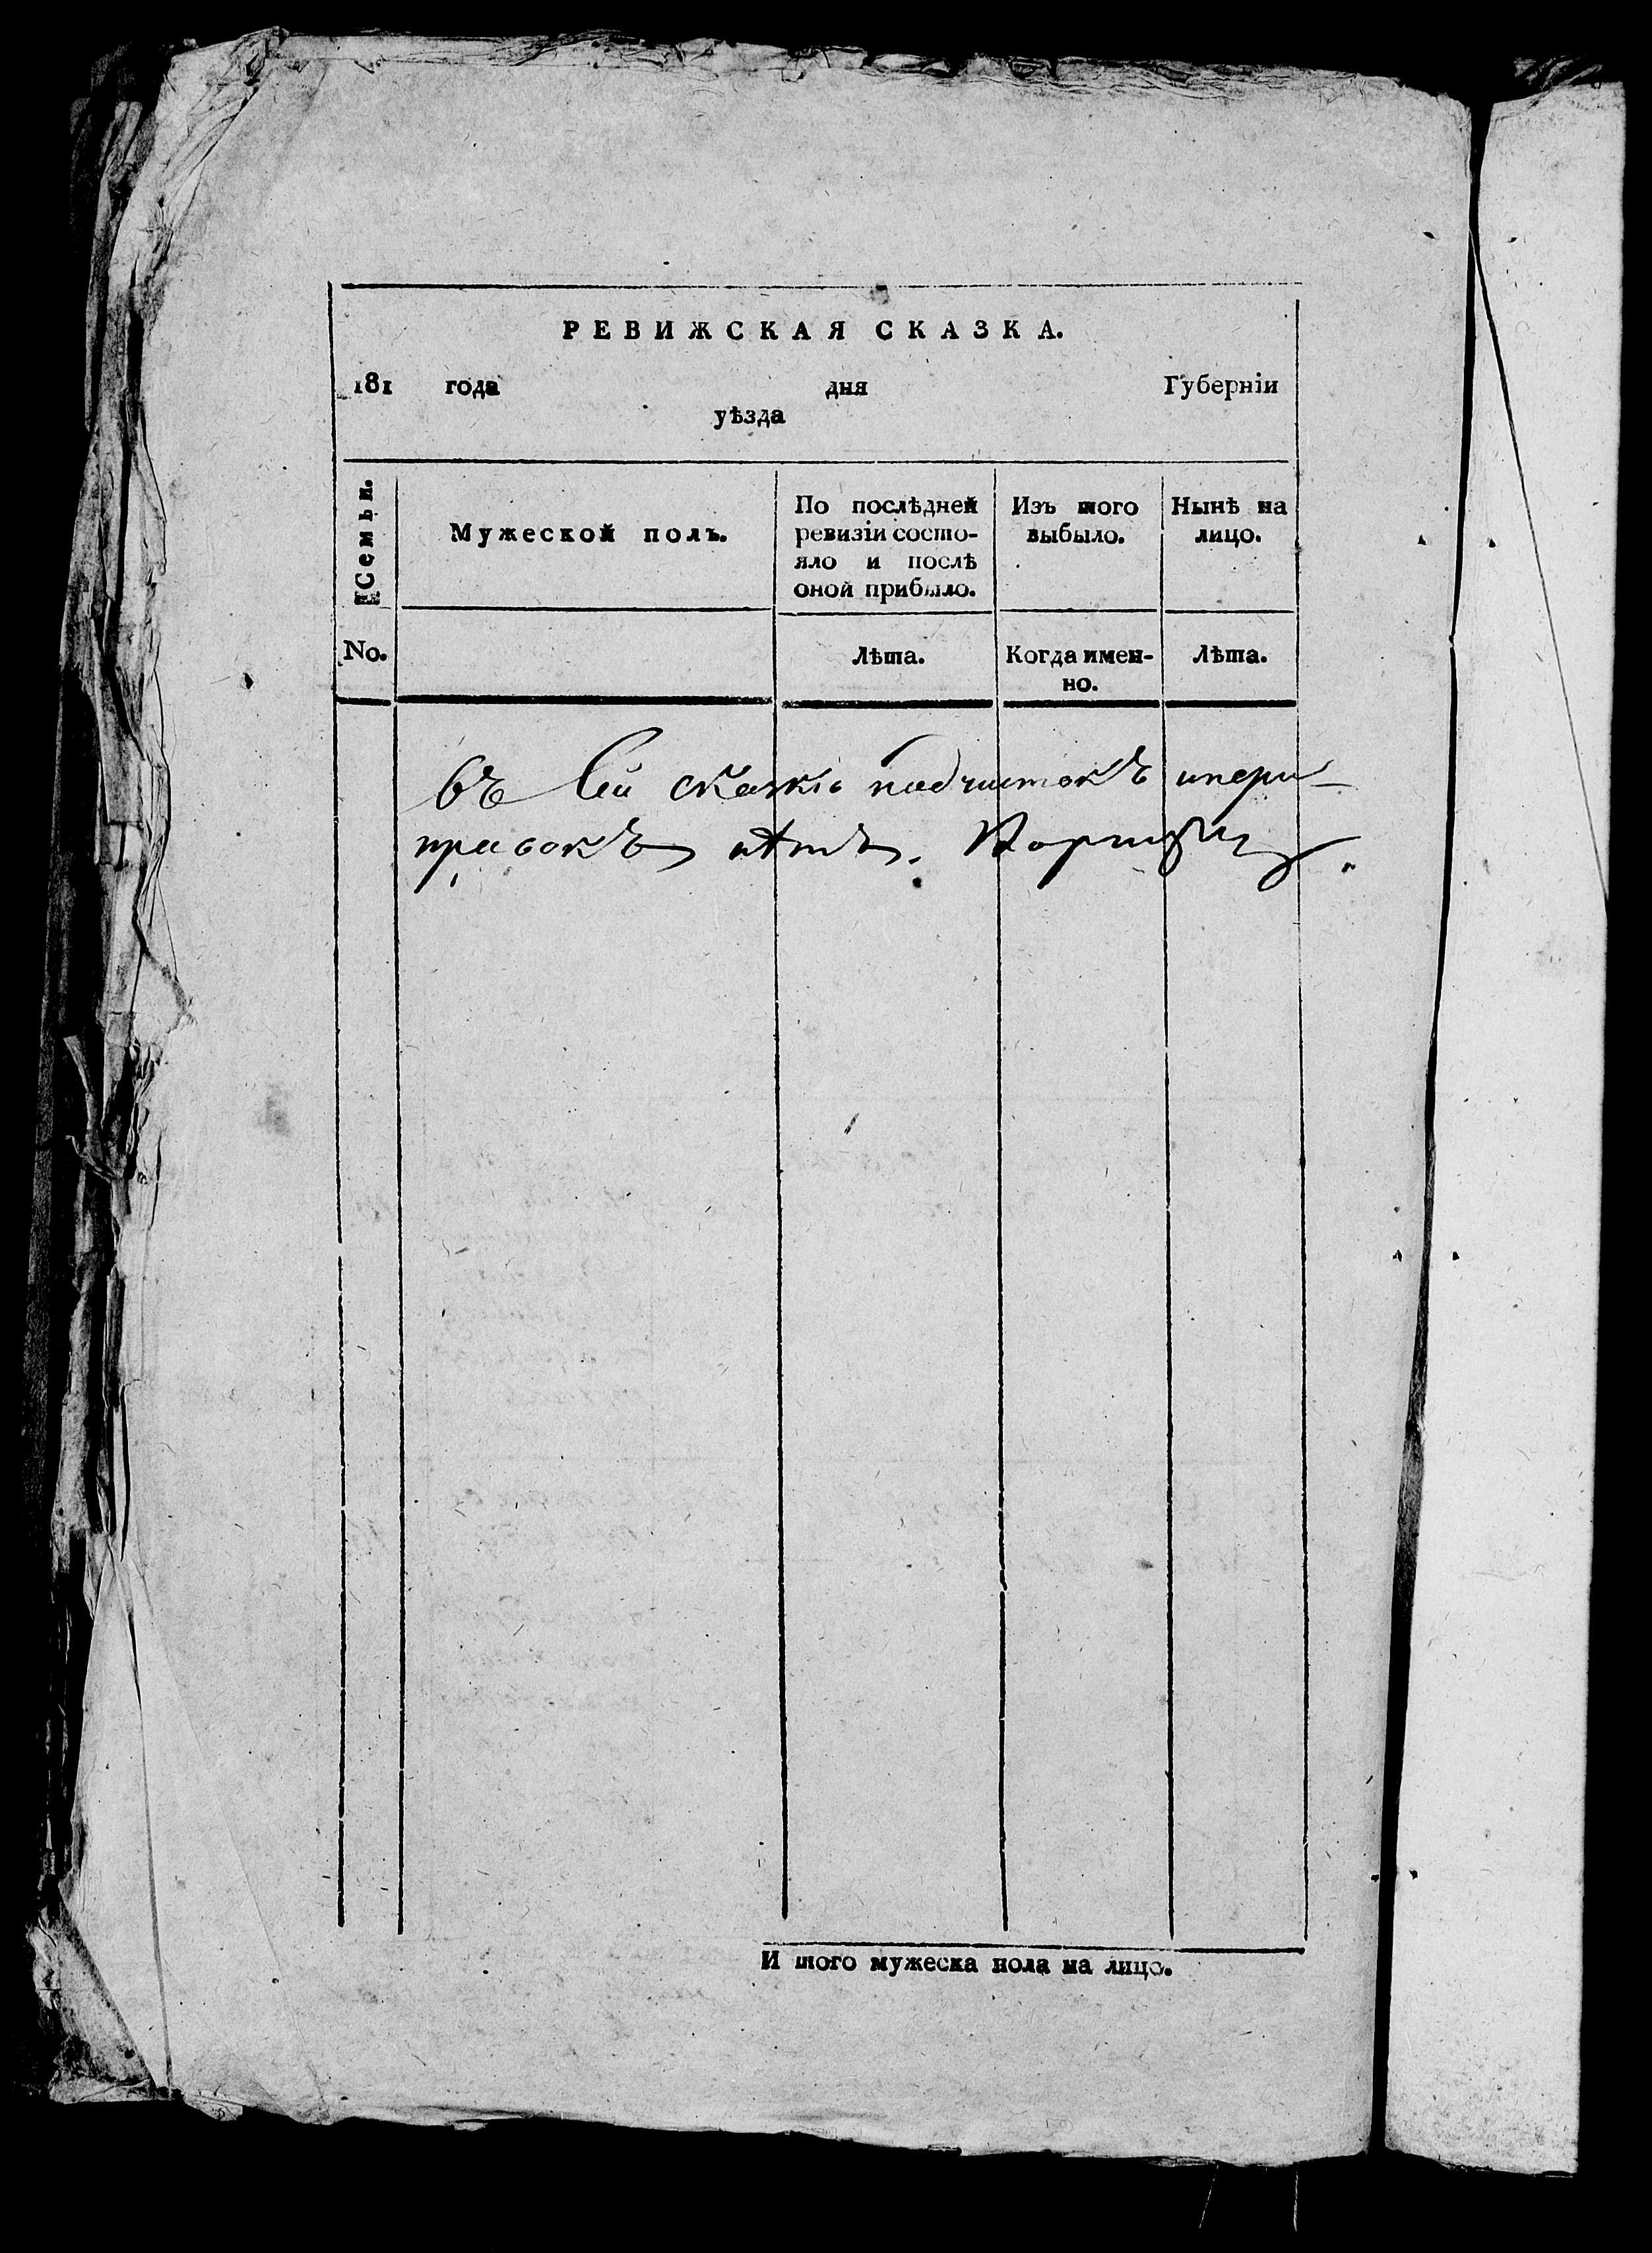 РЕВИЖСКАЯ СКАЗКА.
181 года дня Губерніи
уѣзда
Семьи.
Мужеской полъ.
По послѣдней
ревизіи состо-
яло и послѣ
оной прибыло.
Изъ того
выбыло.
Нынѣ на
лицо.
No.
Лѣта.
Когда имен-
но.
Лѣта.
въ сей скаскѣ подчистокъ ипери-
правокъ нѣтъ.
И того мужеска пола на лицо.